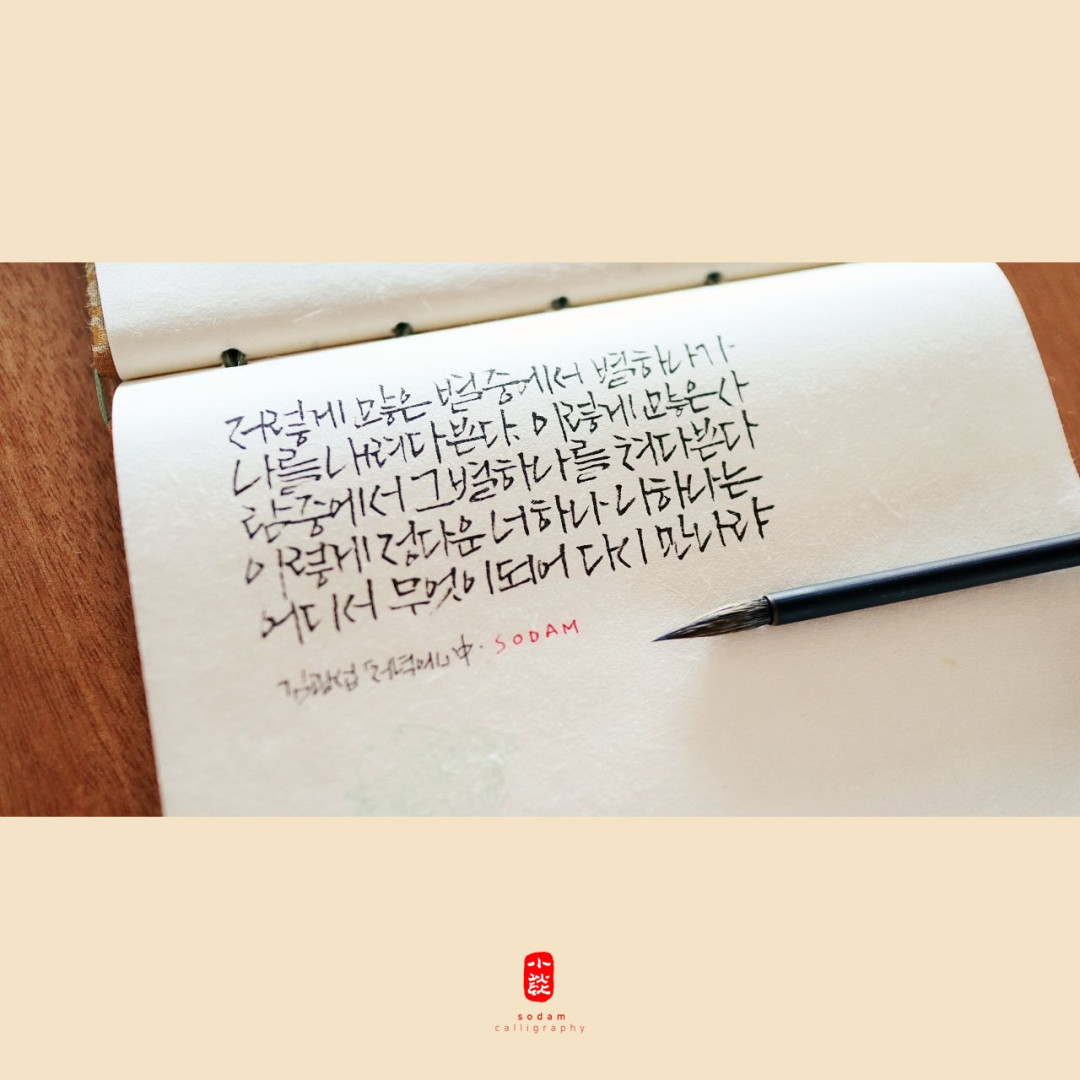 저렇게 많은 별중에서 별하나가
나를 내려다 본다. 이렇게 많은 사
람중에서 그별하나를 쳐다본다
이렇게 정다운 너하나 나하나는
어디서 무엇이되어 다시 만나랴
김광섭 「저녁에」中. SODAM
小談
sodam
calligraphy